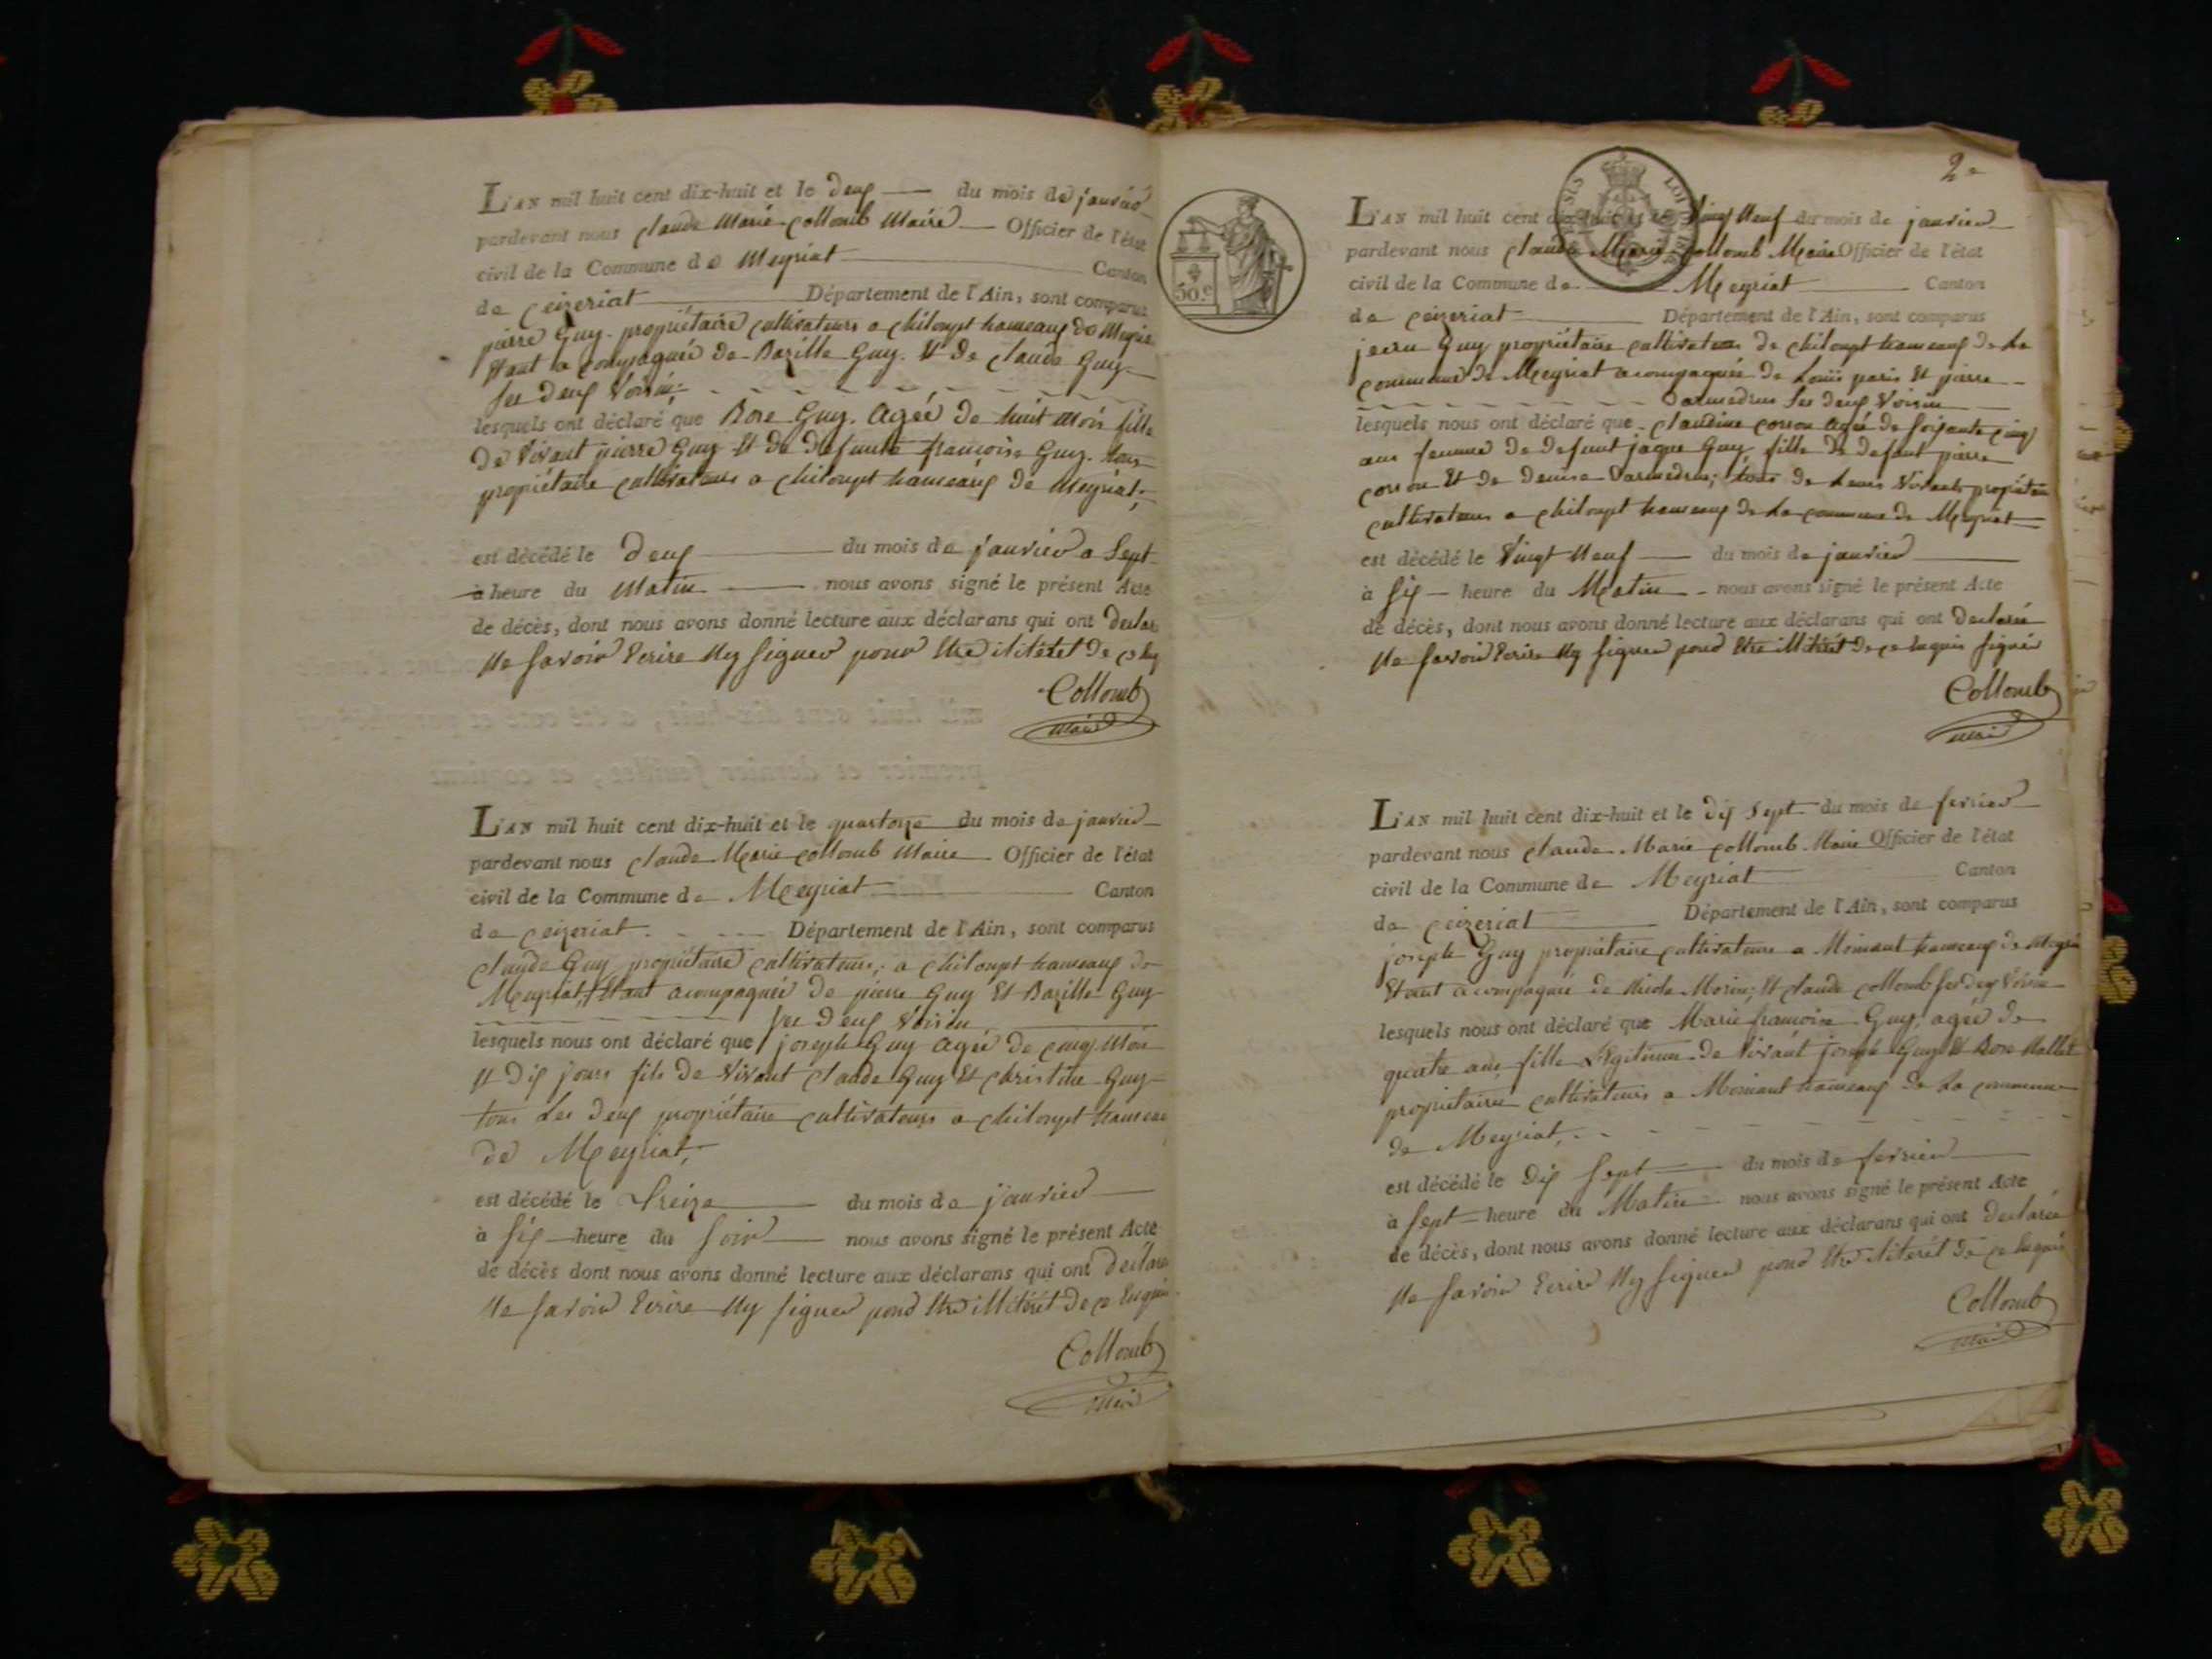 L'AN mil huit cent dix-huit et le deux du mois de janvier
pardevant nous claude Marie collomb Maire Officier de l'état
civil de la Commune de Meyriat Canton
de ceizeriat Département de l'Ain, sont comparus
pierre Guy propriétaire cultivateurs a chiloupt hameaux de Meyria
Etant acompagnée de Bazille Guy Et de claude Guy
ses deux voisin
lesquels ont déclaré que Rose Guy. Agée de huit mois fille
de vivant pierre Guy Et de défunte françoise Guy. tous
propriétaire cultivateurs a chiloupt hameaux de Meyriat,
est décédé le deux du mois de janvier a Sept
à heure du Matin nous avons signé le présent Acte
de décès, dont nous avons donné lecture aux déclarans qui ont declar
Ne savoir Ecrire Ny signer pour Etre ilitéret de ce
Collomb
maire
L'AN mil huit cent dix-huit et le quatorze du mois de janvier
pardevant nous claude Marie collomb Maire Officier de l'état
civil de la Commune de Meyriat Canton
de ceizeriat Département de l'Ain, sont comparus
claude Guy propriétaire cultivateurs, a chiloupt hameaux de
Meyriat, Etant acompagnée de pierre Guy Et Bazille Guy
ses deux voisin
lesquels nous ont déclaré que joseph Guy Agée de cinq Mois
Et dix jours fils de vivant claude Guy Et christine Guy
tous Les deux propriétaire cultivateurs a chiloupt hameau
de Meyriat,
est décédé le treize du mois de janvier
à six heure du soir nous avons signé le présent Acte
de décès dont nous avons donné lecture aux déclarans qui ont declaré
Ne savoir Ecrire Ny signer pour Etre illitéret de ce
Collomb
maire
50.c
2e
L'AN mil huit cent dix-huit et le vingt Neuf du mois de janvier
pardevant nous claude Marie collomb Maire Officier de l'état
civil de la Commune de Meyriat Canton
de ceizeriat Département de l'Ain, sont comparus
Guy propriétaire cultivateurs de chiloupt hameaux de La
commune de Meyriat acompagnée de Louis paris Et pierre
ses deux voisin
lesquels nous ont déclaré que claudine corron agée de soixante cinq
ans femme de defunt jaque Guy, fille de defunt pierre
corron Et de denise tous de Leurs vivants propriétaire
cultivateurs a chiloupt hameaux de La commune de Meyriat
est décédé le vingt Neuf du mois de janvier
à six heure du Matin nous avons signé le présent Acte
de décès, dont nous avons donné lecture aux déclarans qui ont declarée
Ne savoir Ecrire Ny signer pour Etre illitéret de ce signée
Collomb
maire
L'AN mil huit cent dix-huit et le dix sept du mois de fevrier
pardevant nous claude Marie collomb Maire Officier de l'état
civil de la Commune de Meyriat Canton
de ceizeriat Département de l'Ain, sont comparus
joseph Guy propriétaire cultivateurs a hameaux de Meyria
Etant acompagnée de Morin, Et claude collomb ses deux voisin
lesquels nous ont déclaré que Marie françoise Guy, agée de
quatre ans fille Légitime de vivant joseph Guy Et Rose
propriétaires cultivateurs a hameaux de La commune
de Meyriat,
est décédé le dix sept du mois de fevrier
à sept heure du Matin nous avons signé le présent Acte
de décès, dont nous avons donné lecture aux déclarans qui ont declarée
Ne savoir Ecrire Ny signer pour Etre de ce
Collomb
maire